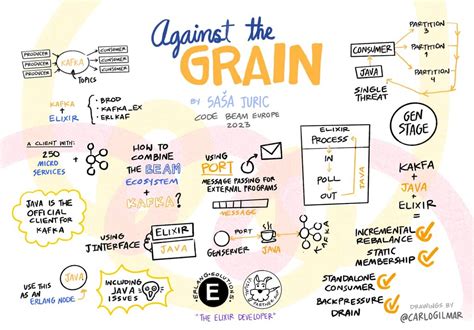 Against the
GRAIN
BY SAŠA JURIC
CODE BEAM EUROPE
2023
PRODUCER
PRODUCER
PRODUCER
KAFKA
CONSUMER
CONSUMER
CONSUMER
TOPICS
KAFKA
+
ELIXIR
• BROD
• KAFKA_EX
• ERLKAF
CONSUMER
JAVA
SINGLE
THREAT
PARTITION
3
PARTITION
1
PARTITION
4
GEN
STAGE
A CLIENT WITH:
250
MICRO
SERVICES
+
HOW TO
COMBINE
THE BEAM
ECOSYSTEM
+
KAFKA?
USING
PORT
MESSAGE PASSING FOR
EXTERNAL PROGRAMS
MESSAGE
ELIXIR
PROCESS
IN
POLL
OUT
JAVA
KAKFA
+
JAVA
+
ELIXIR
=
JAVA IS THE
OFFICIAL
CLIENT FOR
KAFKA
USING
JINTERFACE
ELIXIR
JAVA
GENSERVER
JAVA
KAFKA
INCREMENTAL
REBALANCE
STATIC
MEMBERSHIP
STANDALONE
CONSUMER
BACKPRESSURE
DRAIN
USE THIS AS
AN ERLANG NODE
JAVA
INCLUDING
JAVA'S
ISSUES
ERLANG-SOLUTIONS
E
"THE ELIXIR DEVELOPER"
DRAWINGS BY
@CARLOGILMAR